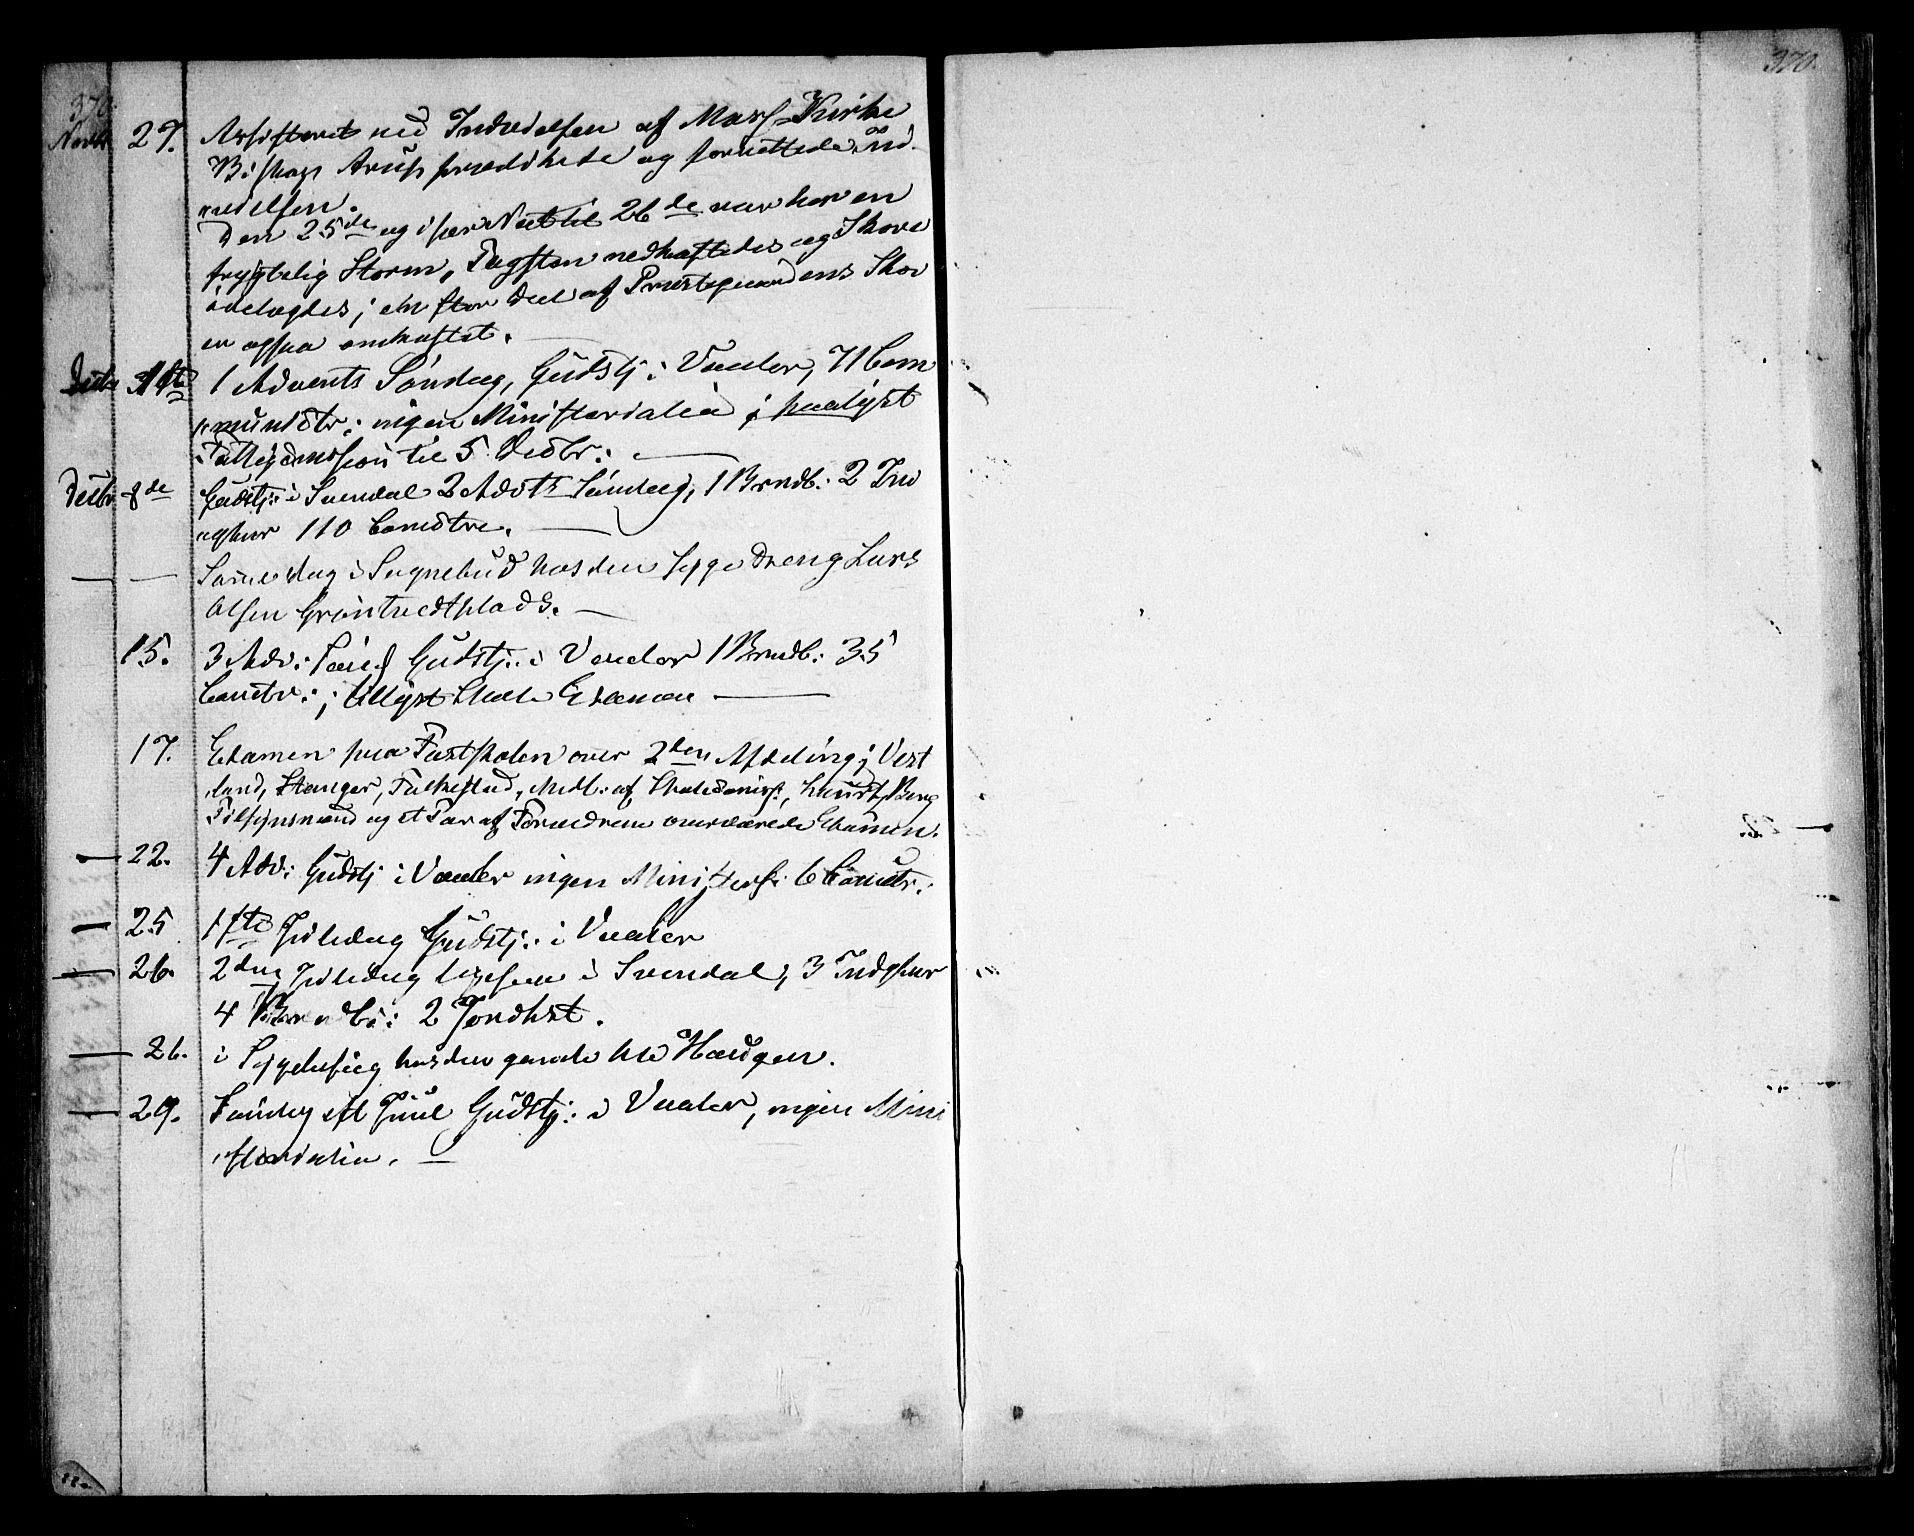 370. 370.
Novbr 27. Assisteret ved Indvielsen af Moss Kirke
Biskop Arup prædikede og forrettede Ind
vielsen.
Den 25de og især Nat til 26de var her en
frygtelig Storm, Tagsten nedkastedes og Skove
ødelagdes; en stor Deel af Præstegaardens Skov
er ogsaa omkastet.
Decbr 1ste 1 Advents Søndag, Gudstj: i Vaaler, 71 Com
munictr: ingen Ministerialia; paalyst
til 5 Decbr: —
Decbr 8de Gudstj: i Svendal 2 Advts Søndag, 1 Brndb: 2 Ind
110 Comctre. —
— — Samme dag i Sognebud hos den syge Dreng Lars
Olsen Grøntvedtplads. —
15. 3 Adv: Sønd Gudstj: i Vaaler 1 Brndb: 35
Comctr:; tillyst Skole Examen —
17. Examen paa Fastskolen over 2den Afdeling; Vest
land, Stanger, Folkestad, Medl: af Skolecomiss:, Berg
Tilsynsmand og et Par af Forældrene overværede Examen.
— 22. 4 Adv: Gudstj i Vaaler ingen Minister: 6 Comctr:
— 25 1ste Juledag Gudstj: i Vaaler
— 26. 2den Juledag i Svendal; 3 Indgskr
4 Brndb: 2 Jordkst.
— 26. i Sygebesøg hos den gamle Haugen.
— 29. Søndag eft Juul Gudstj: i Vaaler, ingen Mini
sterialia. —